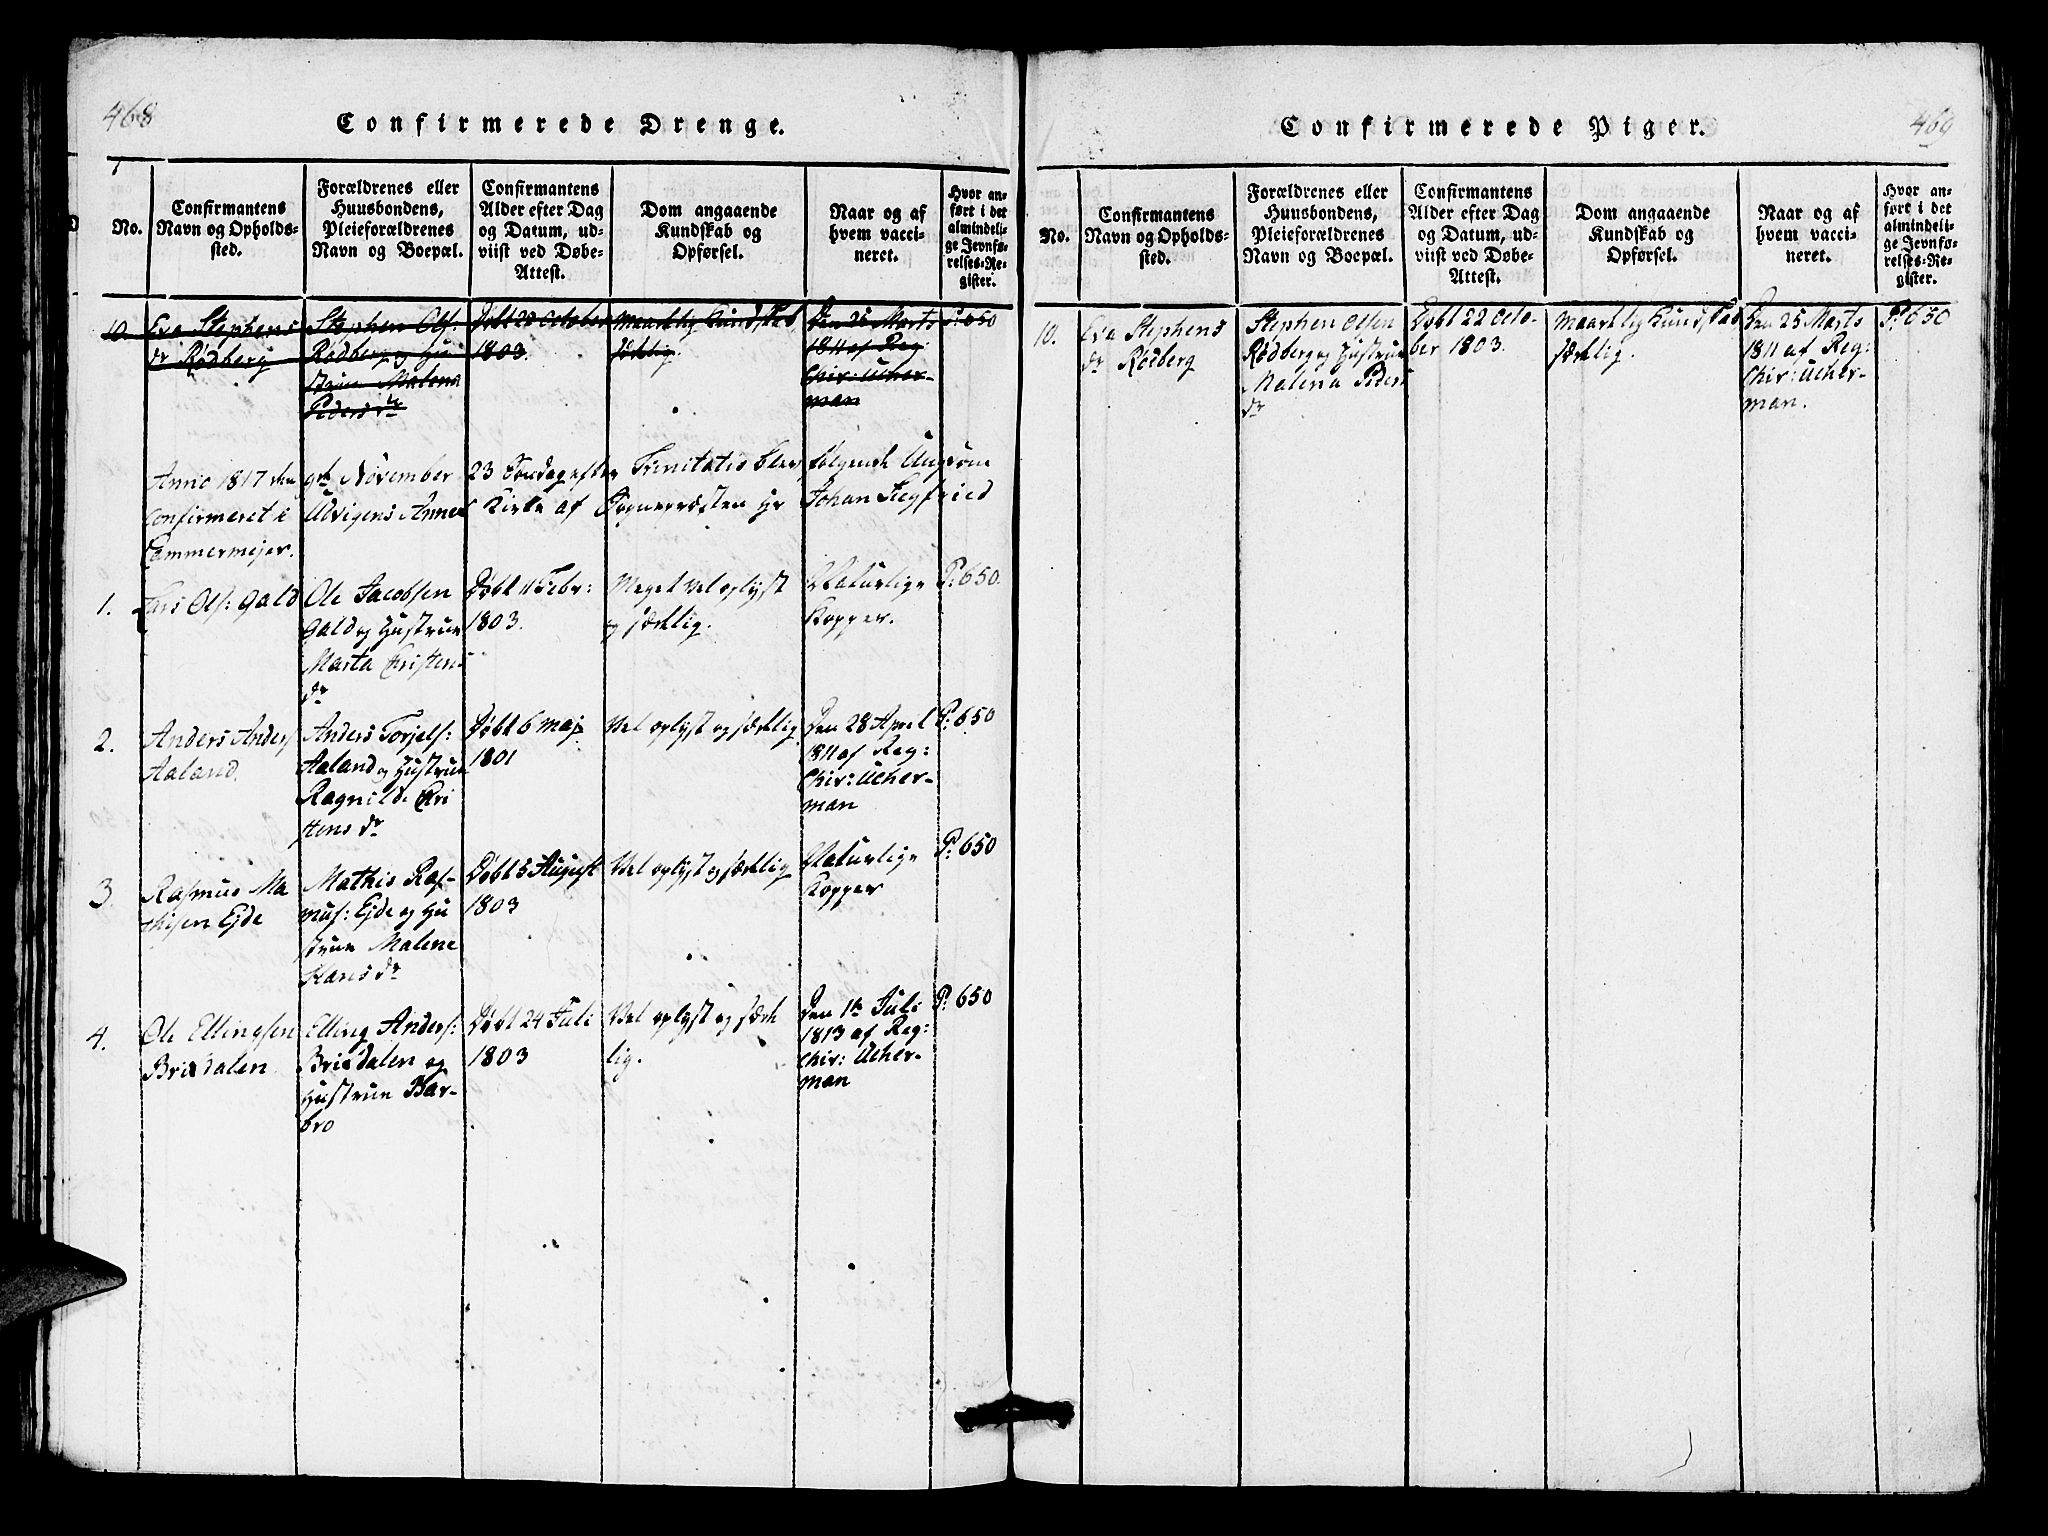 468
Confirmerede Drenge.
No.
Confirmantens
Navn og Opholds-
sted.
Forældrenes eller
Huusbondens,
Pleieforældrenes
Navn og Boepæl.
Confirmantens
Alder efter Dag
og Datum, ud-
viist ved Døbe-
Attest.
Dom angaaende
Kundskab og
Opførsel.
Naar og af
hvem vacci-
neret.
Hvor an-
ført i det
almindeli-
ge Jevnfø-
relses-Re-
gister.
10.
Eva Stephens
dr Rødberg
Stephen Ols:
Rødberg og Hu
strue Malena
Peders dr
Døbt 22 October
1803.
Maadelig Kundskab
sædelig.
Den 25 Marts
1811 af Reg:
Chir: Ucher-
man
P: 650
Anno 1817 den 9de November 23 Søndag efter Trinitatis blev følgende Ungdom
confirmeret i Urigens Annex Kirke af Sognepræsten Hr Johan Siegfried
Cammermejer.
1.
Lars Ols: Gald
Ole Jacobsen
Gald og Hustrue
Marta Kristens
dr
Døbt 11 Febr:
1803.
Meget vel oplyst
og sædelig.
Naturlige
Kopper.
P: 650.
2.
Anders Anders
Aaland.
Anders Torjels:
Aaland og Hustrue
Ragnilde Kri
stens dr
Døbt 6 Maj
1801
Vel oplyst og sædelig
Den 28 April
1811 af Reg:
Chir: Ucher-
man
P: 650
3.
Rasmus Ma
thisen Ejde
Mathis Ras-
mus: Ejde og Hu
strue Malene
Hans dr
Døbt 5 August
1803
Vel oplyst og sædelig
Naturlige
Kopper
P: 650
4.
Ole Ellingsen
Brisdalen
Elling Anders:
Brisdalen og
Hustrue Bar-
bro
Døbt 24 Juli
1803
Vel oplyst og sæde
lig.
Den 1te Juli
1813 af Reg:
Chir: Ucher-
man
P: 650
469
Confirmerede Piger.
No.
Confirmantens
Navn og Opholds-
sted.
Forældrenes eller
Huusbondens,
Pleieforældrenes
Navn og Boepæl.
Confirmantens
Alder efter Dag
og Datum, ud-
viist ved Døbe-
Attest.
Dom angaaende
Kundskab og
Opførsel.
Naar og af
hvem vacci-
neret.
Hvor an-
ført i det
almindeli-
ge Jevnfø-
relses-Re-
gister.
10.
Eva Stephens
dr Rødberg
Stephen Olsen
Rødberg og Hustrue
Malena Peders
dr
Døbt 22 Octo-
ber 1803.
Maadelig Kundskab
sædelig.
Den 25 Marts
1811 af Reg:
Chir: Ucher-
man.
P: 650